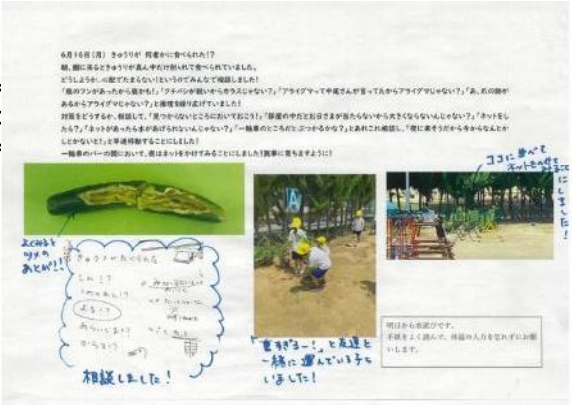 6月16日(月) きゅうりが 何者かに食べられた!?
朝、園に来るときゅうりが真ん中だけ削られて食べられていました。
どうしようか、心配でたまらない!というのでみんなで相談しました!
「鳥のフンがあったから鳥かも!」「クチバシが鋭いからカラスじゃない?」「アライグマって中尾さんが言ってたからアライグマじゃない?」「あ、爪の跡が
あるからアライグマじゃない?」と推理を繰り広げていました!
対策をどうするか、相談して、「見つからないところにおいておこう!」「部屋の中だとお日さまが当たらないから大きくならないんじゃない?」「ネットをし
たら?」「ネットがあったら水があげられないんじゃない?」「一輪車のところだとぶつかるかな?」とあれこれ相談し、「夜に来そうだから今からなんとか
しとかないと!」と早速移動することにしました!
一輪車のバーの間において、夜はネットをかけてみることにしました!無事に育ちますように!
ココに並べて
ネットをのせて
みることにしました!
よくみると
ツメの
あとが!!
きゅうりがたべられた
よる!?
あらいぐま!?
からす!?
相談しました!
「重すぎるー!」と友達と
一緒に運んでいる子も
いました!
明日から水遊びです。
手紙をよく読んで、体温の入力を忘れずにお願
いします。